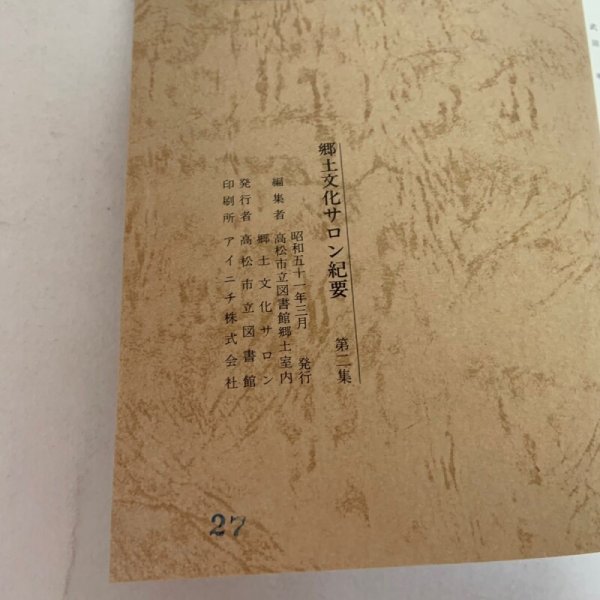 郷土文化サロン紀要 第二集
昭和五十一年三月 発行
高松市立図書館郷土室内
編集者 郷土文化サロン
発行者 高松市立図書館
印刷所 アイニチ株式会社
27